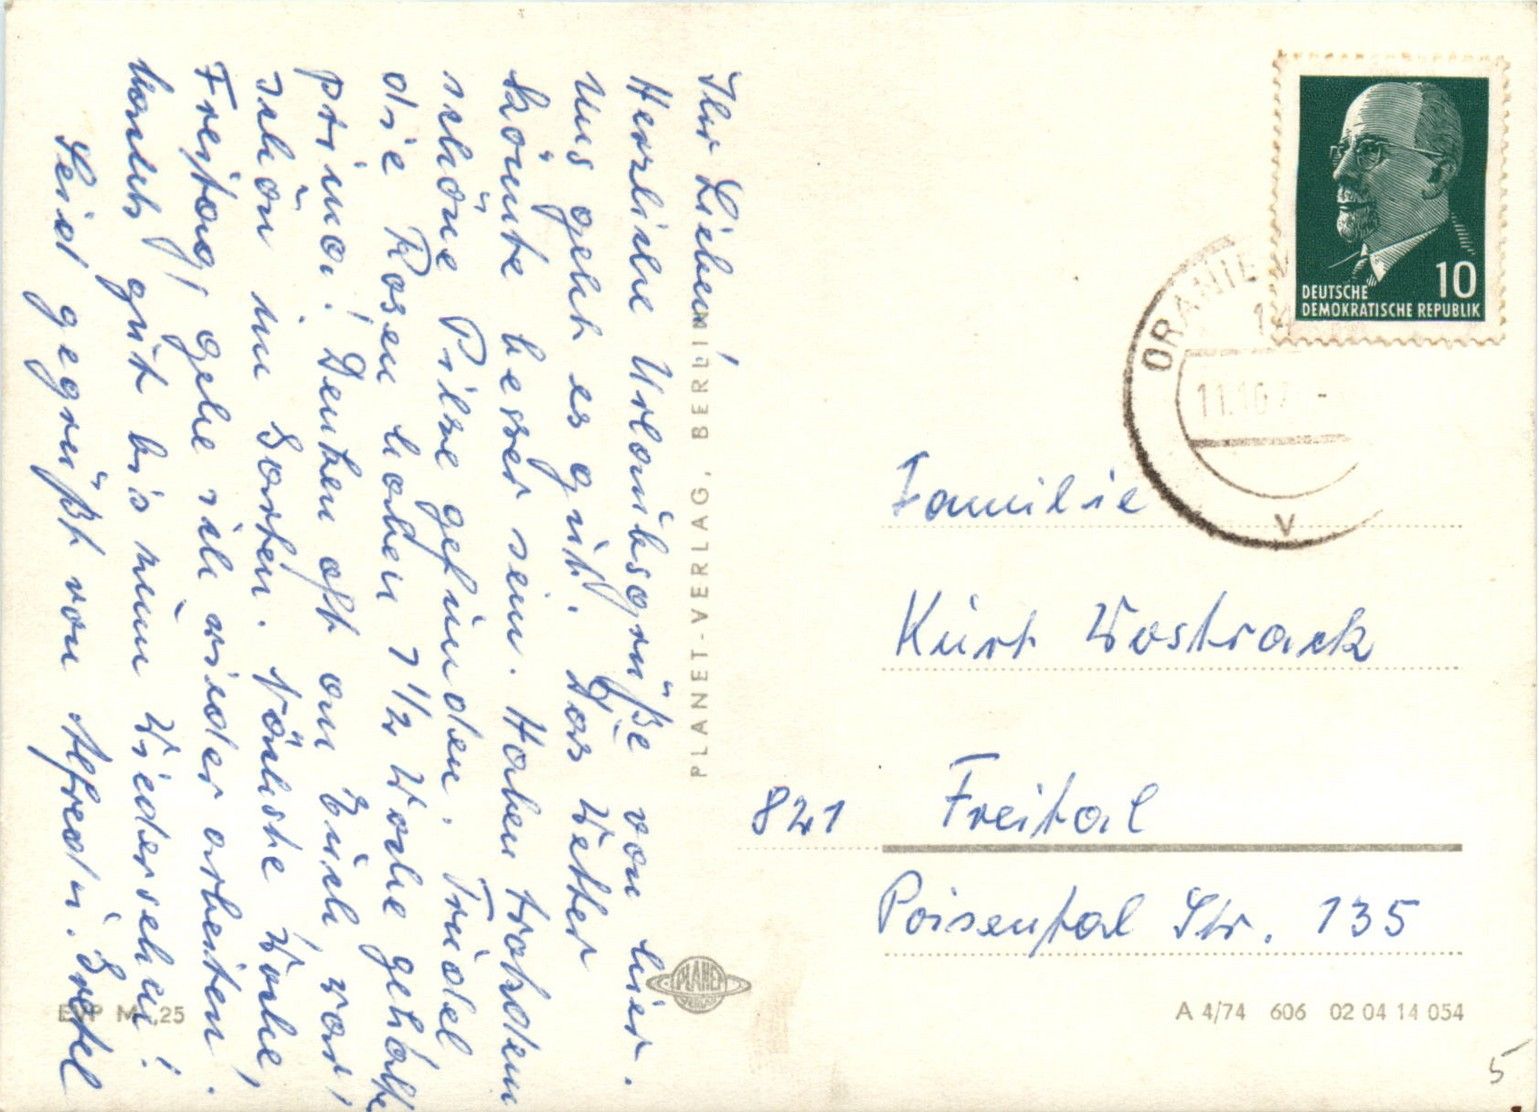 Ihr Lieben!
Herzliche Urlaubsgrüße von hier.
Uns geht es gut. Das Wetter
könnte besser sein. Haben trotzdem
schöne Pilze gefunden. Trudel
die Rosen haben 1 1/2 Woche gehalten
prima! Denken oft an Euch, war
schön im Garten. Nächste Woche,
Freitag, gehe ich wieder arbeiten.
Machts gut bis zum Wiedersehen!
Seid gegrüßt von Alfred u. Gretel
PLANET-VERLAG, BERLIN
PLANET
VERLAG
EVP M -,25
DEUTSCHE
DEMOKRATISCHE REPUBLIK
10
ORANIE
11.10.7
V
Familie
Kurt Wostrack
821 Freital
Poisental Str. 135
A 4/74 606 02 04 14 054
5